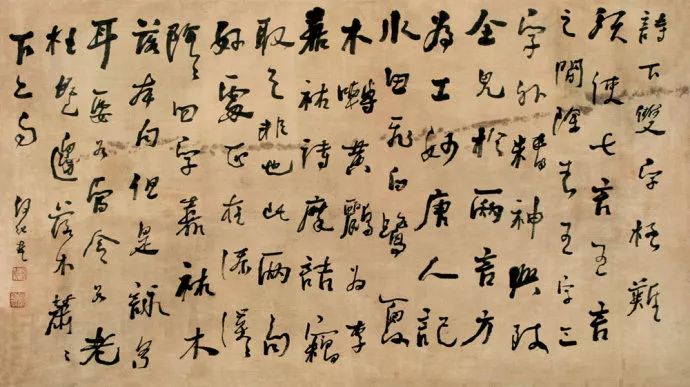 詩下雙字極難
須使七言五言
之間除去五字三
字外精神興致
全見於兩言方
為工妙唐人記
水田飛白鷺夏
木囀黃鸝為李
嘉祐詩摩詰竊
取之非也此兩句
好處正在添漠〻
陰〻四字嘉祐
本句但是詠景
耳要當令如老
杜無邊落木蕭〻
下之句